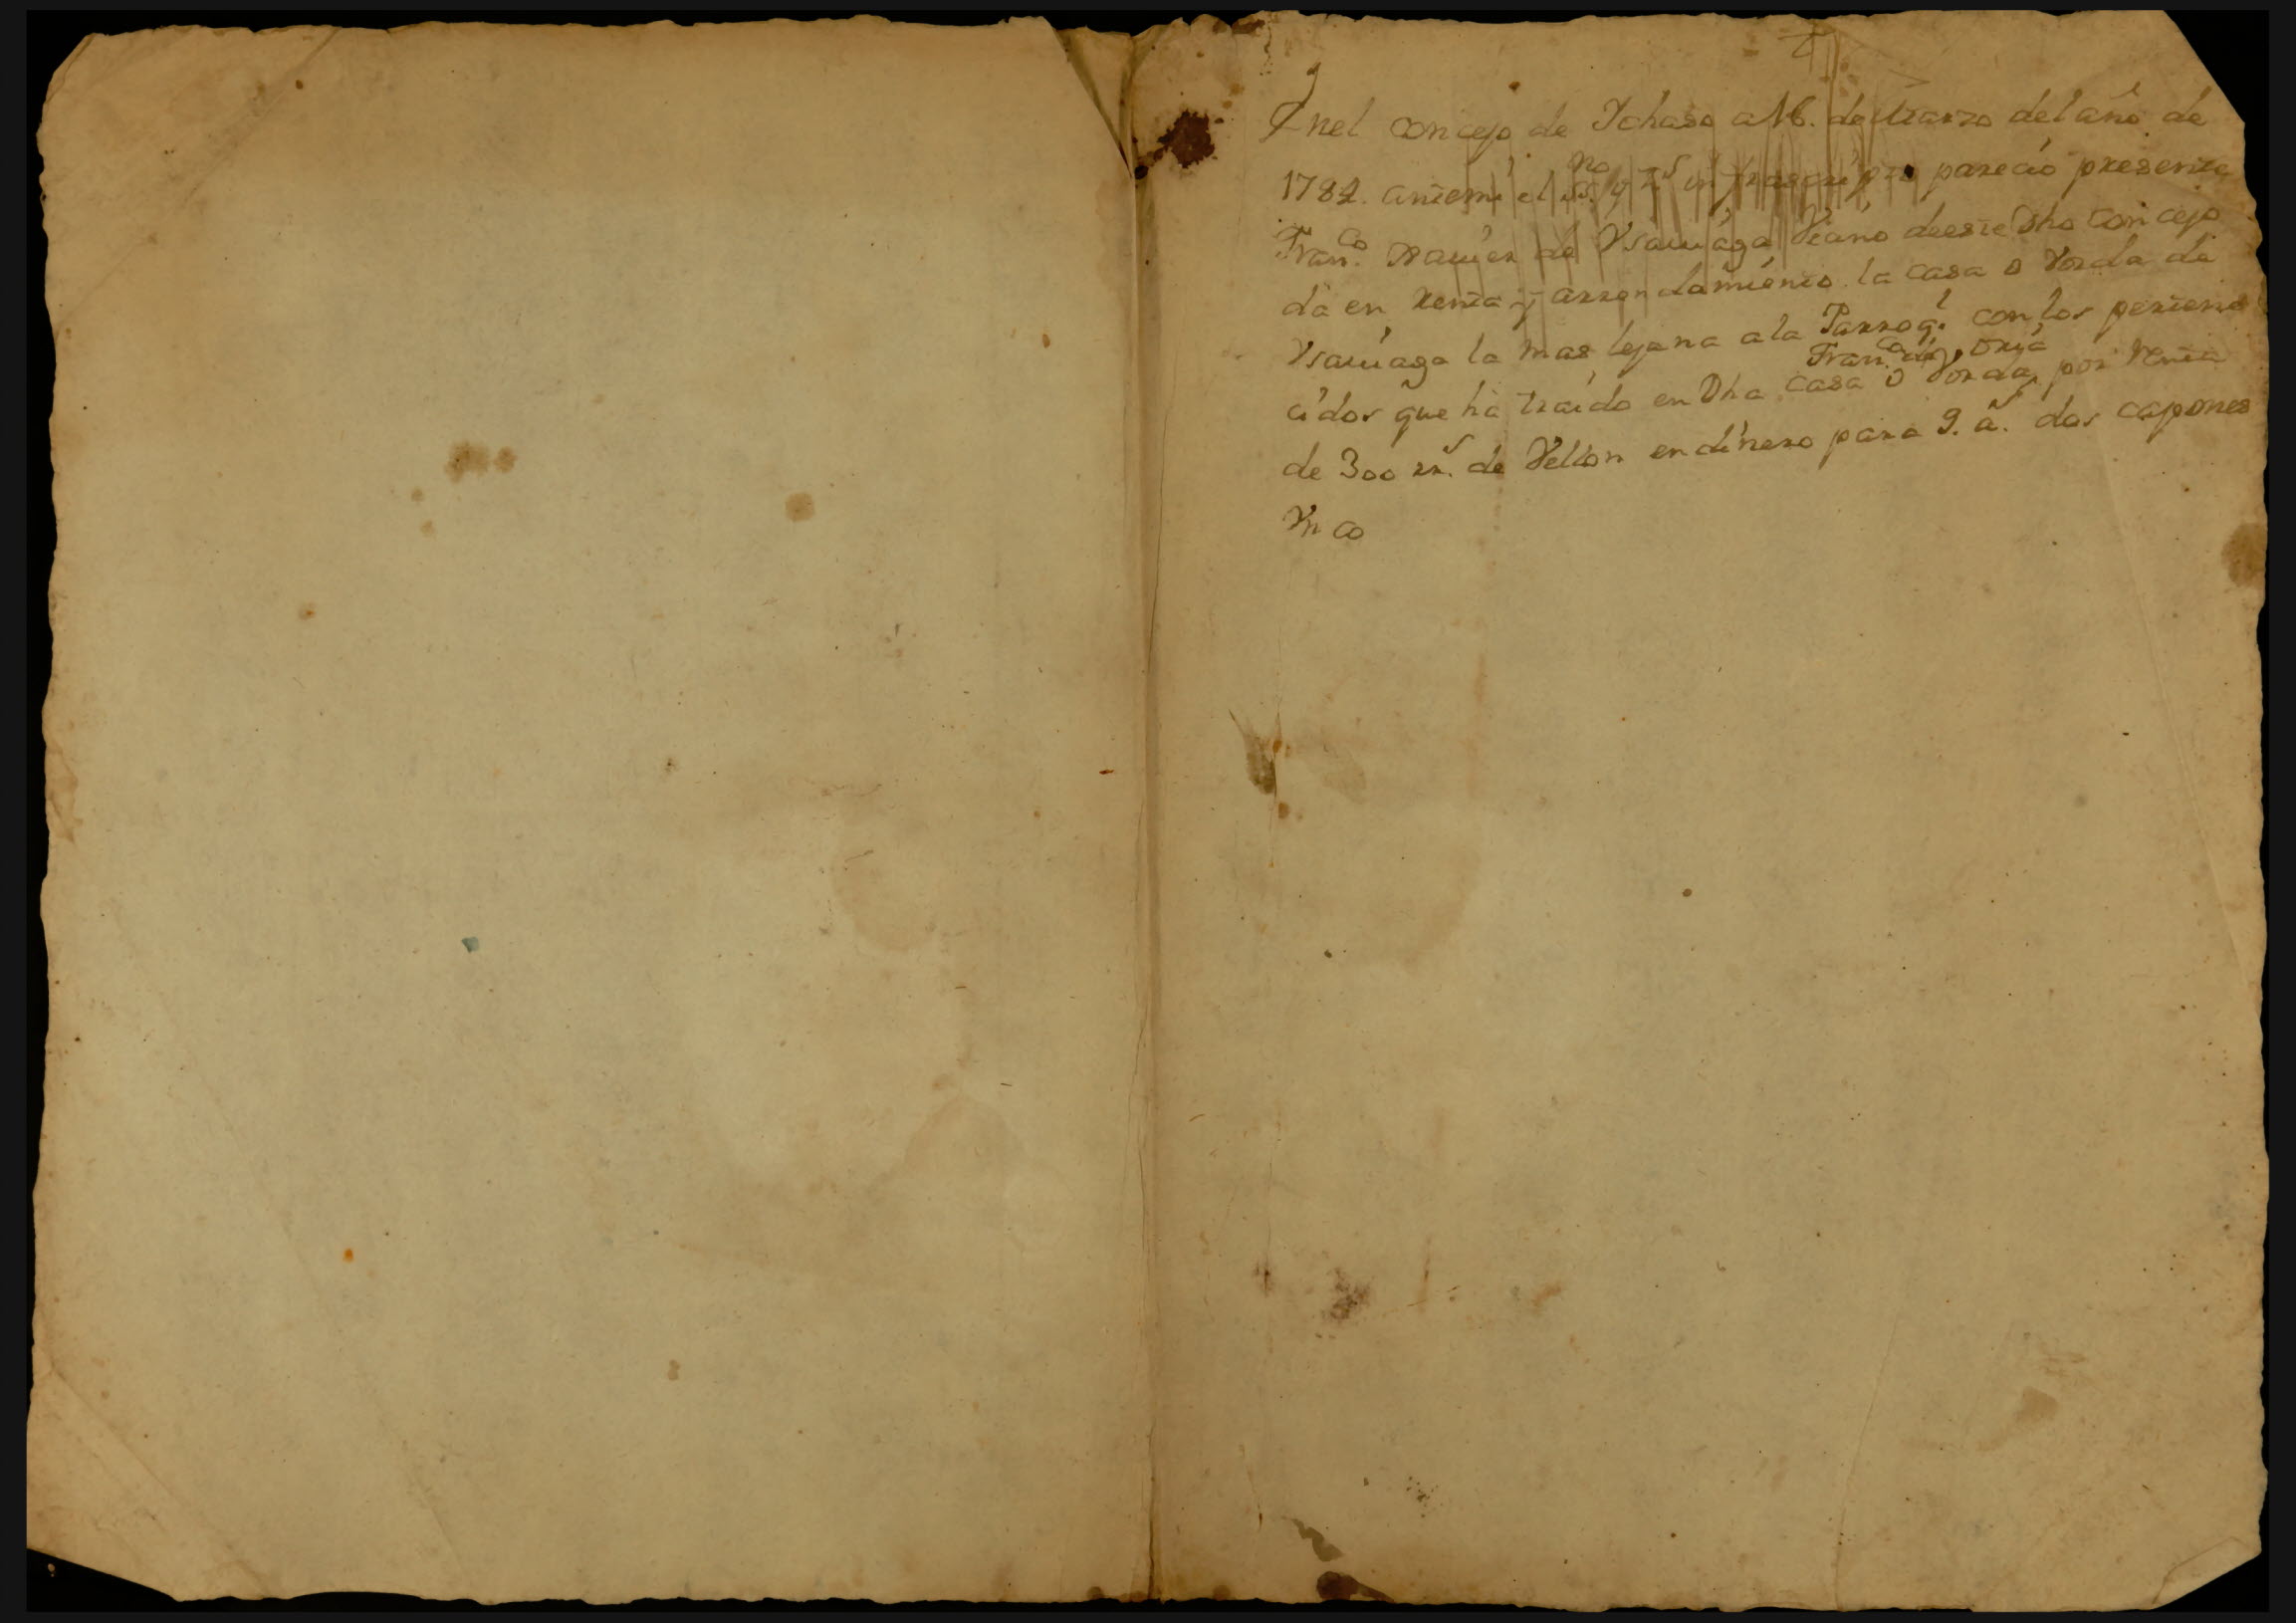 Enel concejo de Ichaso a 16. de Marzo del año de
1782. antemi el ss.no y ts infraescriptos pareció presente
Fran.co Xauier de Ysauiaga Vecino deeste Dho Concejo
da en Renta y arrendamiento la casa o Borda de
Ysauiaga la mas lejana a la Parroq.l con los pertene
cidos que ha traido en Dha casa o Borda, por Renta
Fran.co de Oria
de 300 rr.s de Vellon en dinero para 9. a.s dos capones
Yn co